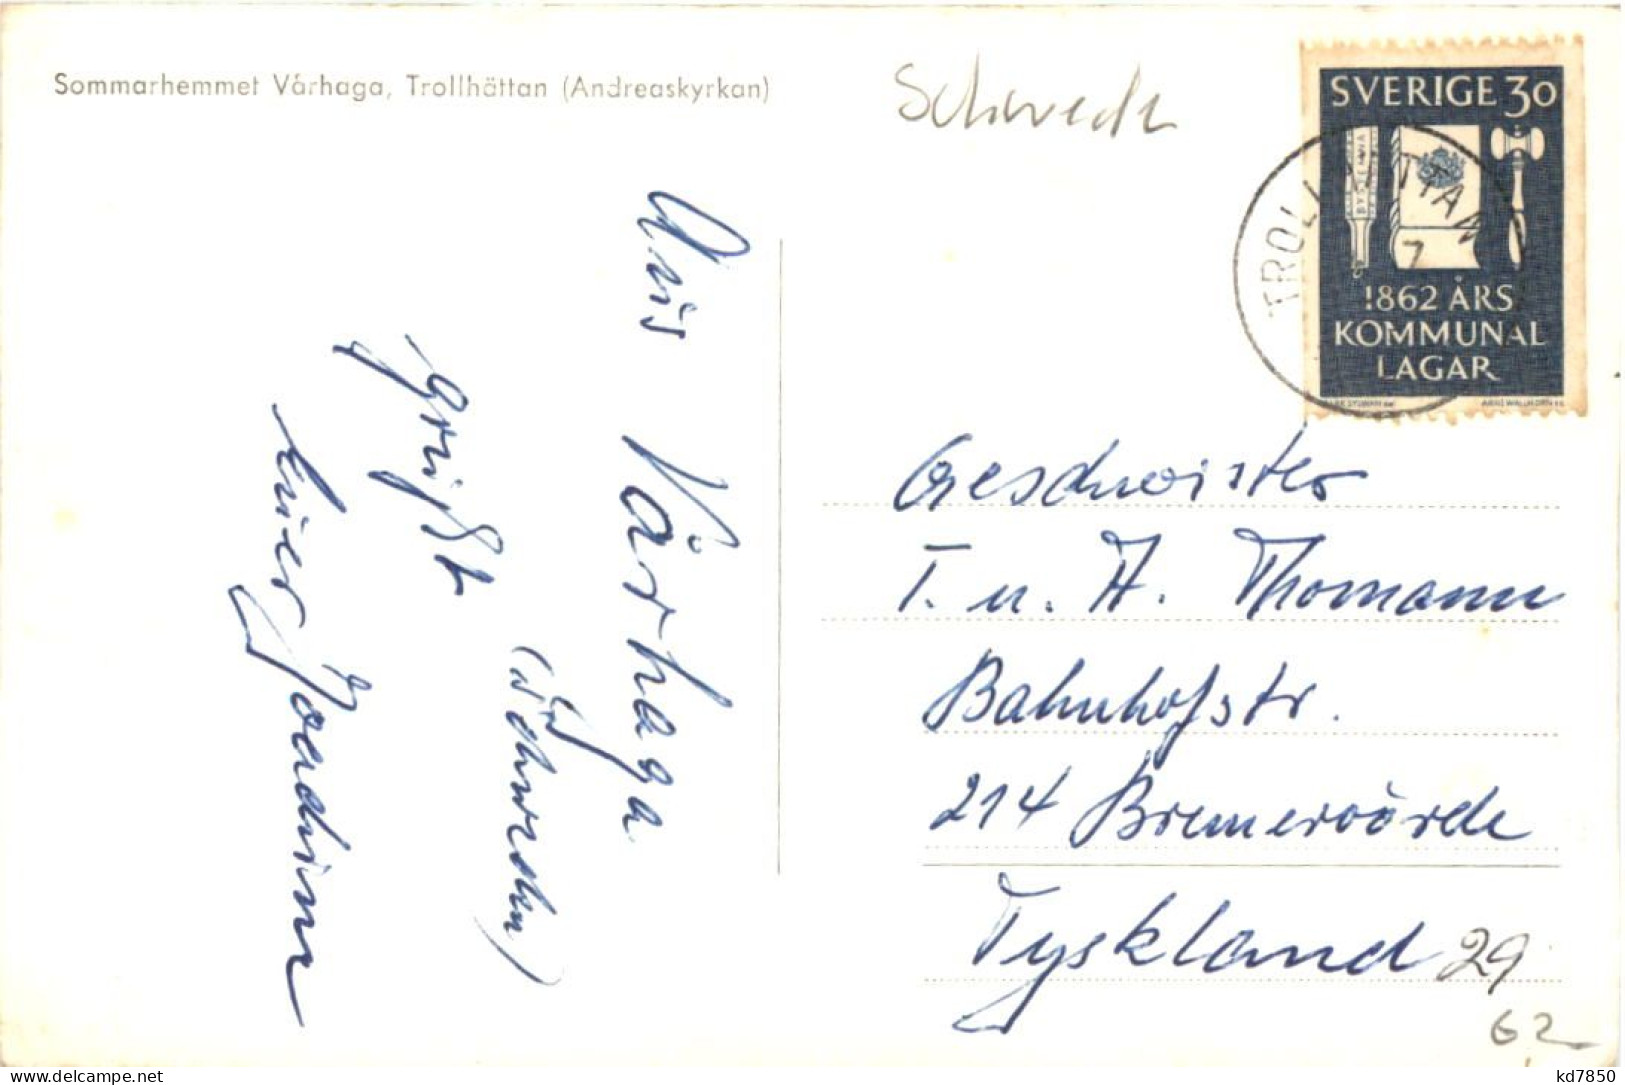 Sommarhemmet Vårhaga, Trollhättan (Andreaskyrkan)
Schweden
SVERIGE 30
1862 ÅRS
KOMMUNAL
LAGAR
TROLLHÄTTAN
7
Aus Vårhaga
(Schweden)
grüßt
Euer Joachim
Geschwister
T. u. A. Thomann
Bahnhofstr.
214 Bremervörde
Tyskland
29
62
kd7850